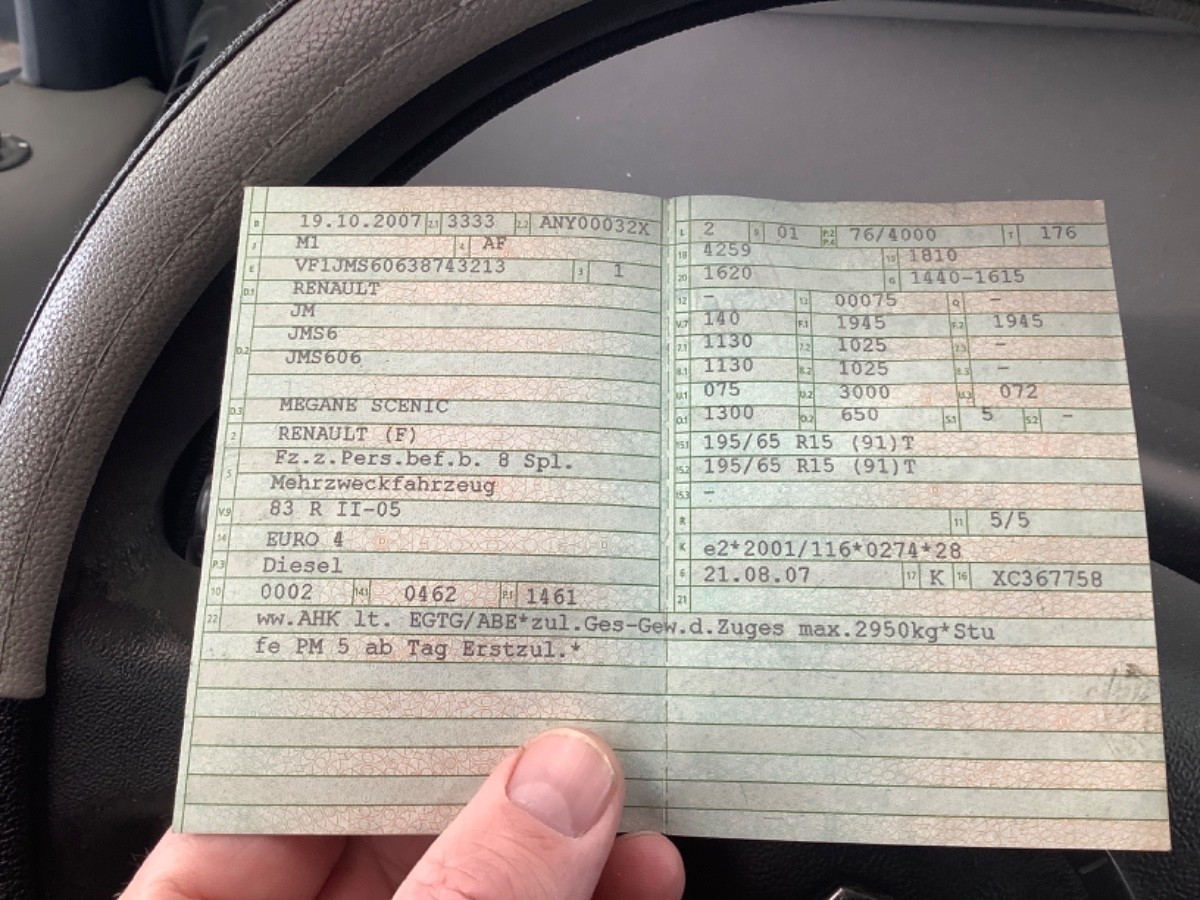 B 19.10.2007 2.1 3333 2.2 ANY00032X
J M1 4 AF
E VF1JMS60638743213 3 1
D.1 RENAULT
JM
D.2 JMS6
JMS606
D.3 MEGANE SCENIC
2 RENAULT (F)
5 Fz.z.Pers.bef.b. 8 Spl.
Mehrzweckfahrzeug
V.9 83 R II-05
14 EURO 4
P.3 Diesel
10 0002 14.1 0462 P.1 1461
L 2 9 01 P.2 P.4 76/4000 T 176
18 4259 19 1810
20 1620 G 1440-1615
12 - 13 00075 Q -
V.7 140 F.1 1945 F.2 1945
7.1 1130 7.2 1025 7.3 -
8.1 1130 8.2 1025 8.3 -
U.1 075 U.2 3000 U.3 072
O.1 1300 O.2 650 S.1 5 S.2 -
15.1 195/65 R15 (91)T
15.2 195/65 R15 (91)T
15.3 -
R 11 5/5
K e2*2001/116*0274*28
6 21.08.07 17 K 16 XC367758
21
22 ww.AHK lt. EGTG/ABE*zul.Ges-Gew.d.Zuges max.2950kg*Stu
fe PM 5 ab Tag Erstzul.*